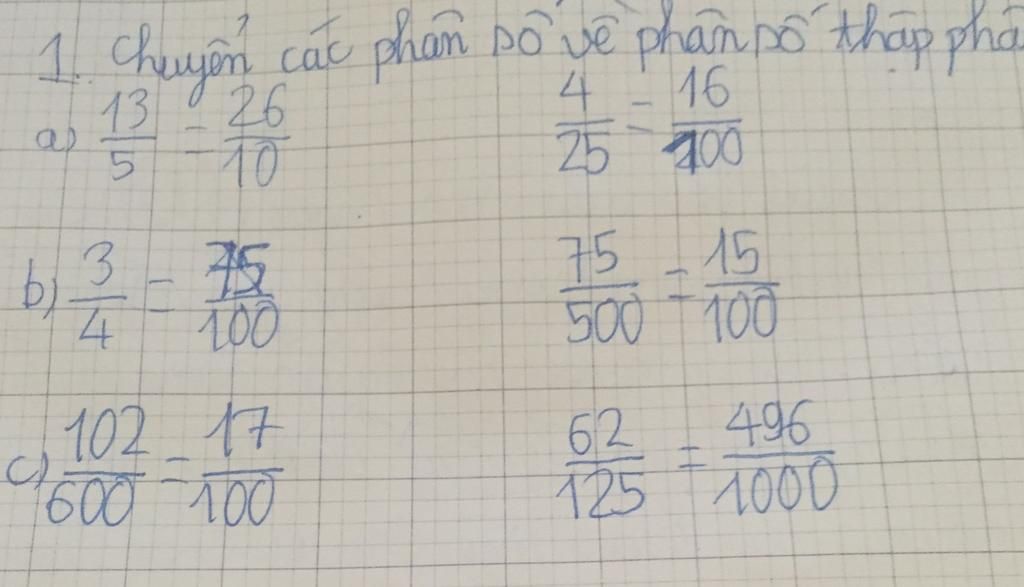 1. Chuyển các phân số về phân số thập phâ
a) 13/5 = 26/10 4/25 = 16/100
b) 3/4 = 75/100 75/500 = 15/100
c) 102/600 = 17/100 62/125 = 496/1000